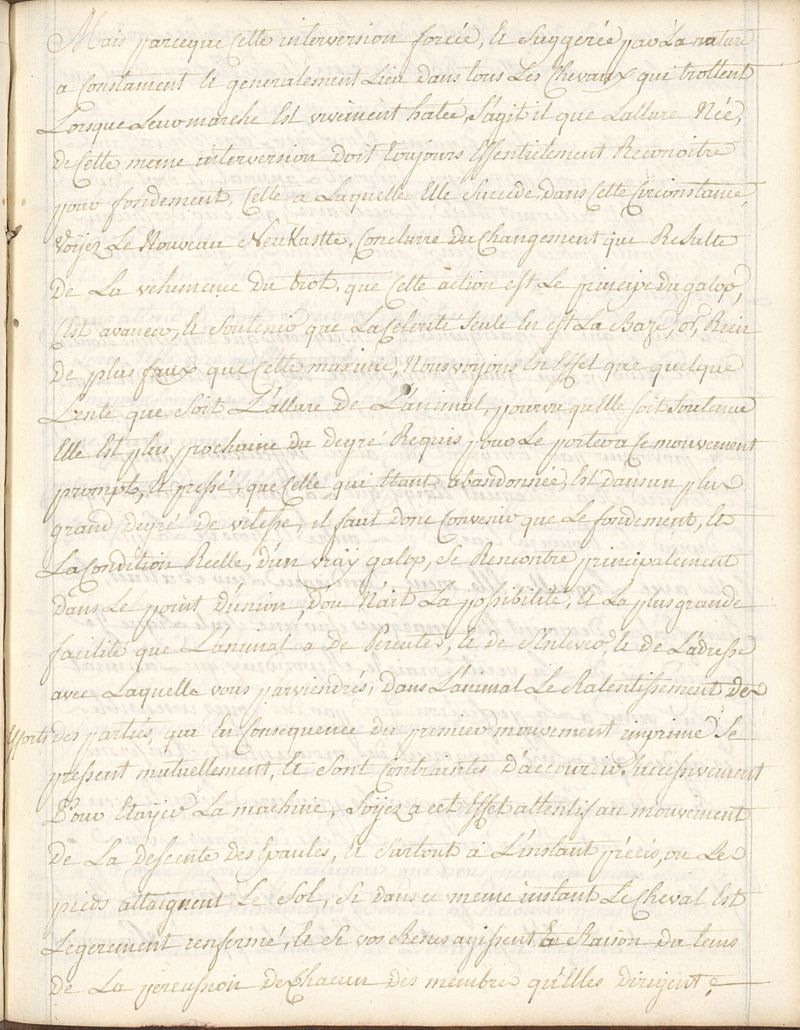 Mais parceque Cette interversion forcée, Et Suggerée par La nature
a Constament Et generalement Lieu dans tous Les Chevaux qui trottent
Lorsque Leur marche Est vivement hatée, S'agit il que Lallure Née,
de Cette meme interversion doit toujours Essentielement Reconoitre
pour fondement, Celle a Laquelle Elle Succede, dans Cette Circonstance,
Voyez Le Nouveau Neukastte, Conclurre Du Changement que Resulte
De La vehemence du trot, que Cette action est Le principe du galop,
C'est avancer, Et Soutenir que La Celerité Seule En est La Baze, or, Rien
de plus faux que Cette maxime, Nous voyons En Effet que quelque
Lente que Soit L'allure de L'animal, pourvu qu'Elle soit Soutenue
Elle Est plus prochaine du degré Requis pour Le porter a Ce mouvement
prompt, Et pressé, que Celle qui Etant abandonnée, Est dans un plus
grand degré de vitesse, il faut donc Convenir que Le fondement, Et
La Condition Reelle, d'un vray galop, Se Rencontre principalement
dans Le point d'union, d'ou Nait La possibilité, Et La plus grande
facilité que L'animal a de Percuter, Et de S'Enlever, Et de L'adresse
avec Laquelle vous parviendrés, dans L'animal Le Ralentissement de
Efforts des parties, qui En Consequence du premier mouvement imprimé Se
pressent mutuellement, Et Sont Contraintes D'accourir Successivement
Pour Etayer La machine, Soyez a cet Effet attentif au mouvement
De La descente des Epaules, Et Surtout à L'instant précis, ou Les
pieds attaignent Le Sol, Si dans ce meme instant Le Cheval Est
Legerement renfermé, Et Si vos Renes agissent En Raison du tems
de La percussion de Chacun des membres qu'Elles dirigent,